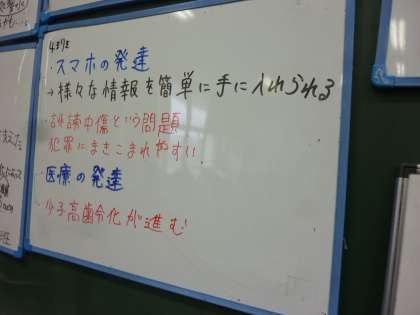 4班
・スマホの発達
→様々な情報を簡単に手に入れられる
・誹謗中傷という問題
犯罪にまきこまれやすい
・医療の発達
・少子高歯令化が進む